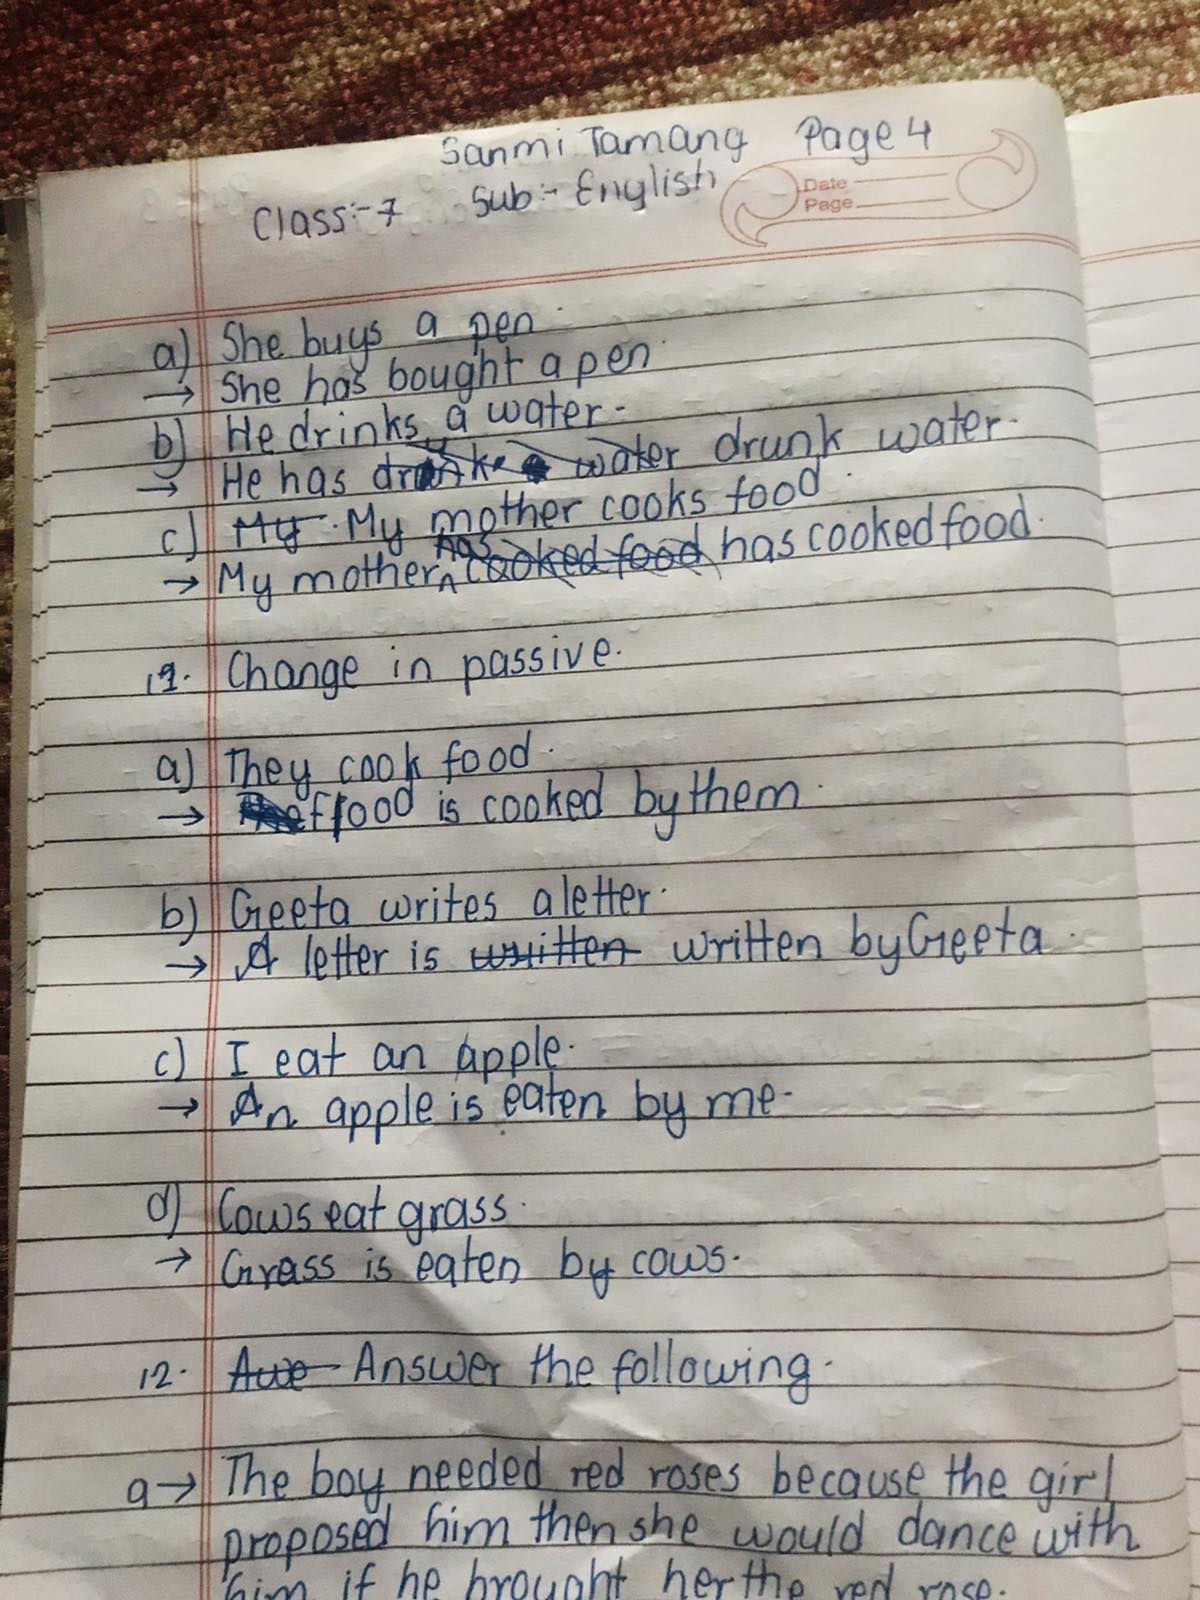 Sanmi Tamang Page 4
Class:-7 Sub:- English
Date
Page
a) She buys a pen.
→ She has bought a pen.
b) He drinks a water.
→ He has water drunk water.
c) My My mother cooks food.
→ My mother has cooked food has cooked food.
11. Change in passive.
a) They cook food.
→ food is cooked by them.
b) Geeta writes a letter.
→ A letter is written written by Geeta.
c) I eat an apple.
→ An apple is eaten by me.
d) Cows eat grass.
→ Grass is eaten by cows.
12. Answer the following.
a → The boy needed red roses because the girl
proposed him then she would dance with
him if he brought her the red rose.